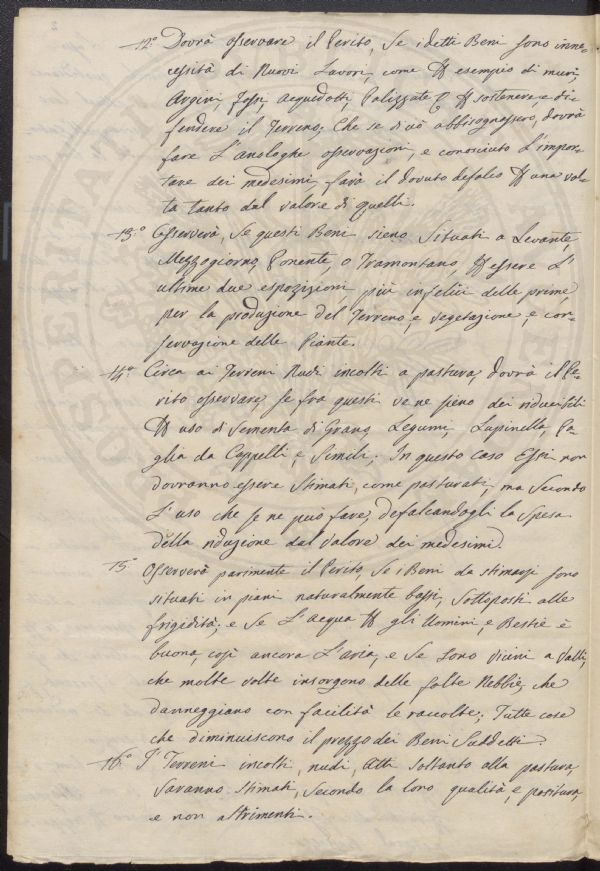 12.° Dovrà osservare il Perito, Se i detti Beni sono in ne=
cessità di Nuovi Lavori, come P esempio di muri,
Argini, Fossi, Acquedotti, Palizzate & P sostenere, e dif
fendere il Terreno; Che se di ciò abbisognassero, dovrà
fare L'analoghe osservazioni, e conosciuto L'impor=
tare dei medesimi, farà il dovuto defalco P una vol=
ta tanto dal valore di quelli.
13.° Osserverà, Se questi Beni sieno Situati a Levante,
Mezzogiorno, Ponente, o Tramontano, P essere L'
ultime due esposizioni più infelici delle prime,
per la produzione del Terreno, e vegetazione, e con=
servazione delle Piante.
14.° Circa ai Terreni Nudi incolti a pastura, dovrà il Pe=
rito osservare, se fra questi ve ne sieno dei riducibili
P uso di Sementa di Grano, Legumi, Lupinella, Pa=
glia da Cappelli, e Simili; In questo caso Essi non
dovranno essere Stimati, come pasturati, ma Secondo
L'uso che se ne può fare, defalcandogli la Spesa
della riduzione dal valore dei medesimi.
15. Osserverà parimente il Perito, Se i Beni da stimarsi sono
situati in piani naturalmente bassi, Sottoposti alle
frigidità; e Se L'Acqua P gli Uomini, e Bestie è
buona, così ancora L'aria, e Se Sono vicini a Valli,
che molte volte insorgono delle folte Nebbie, che
danneggiano con facilità le raccolte; Tutte cose
che diminuiscono il prezzo dei Beni Suddetti.
16.° I' Terreni incolti, nudi, Atti soltanto alla pastura,
Saranno Stimati, Secondo la loro qualità, e positura,
e non altrimenti.